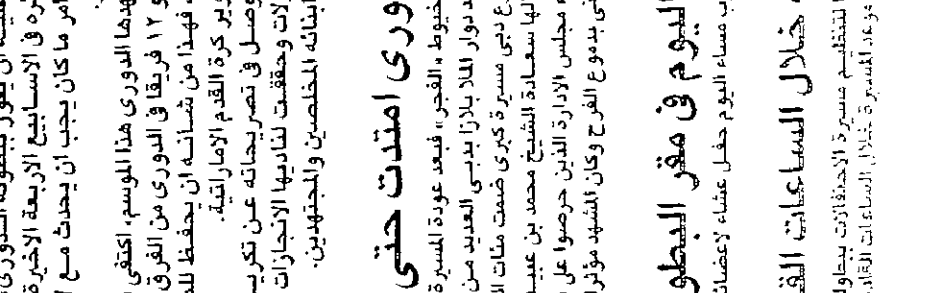 ان يفوز ببطولة الدورى
ره فى الاسابيع الاربعة الاخيرة
امر ما كان يجب ان يحدث مع
الدورى هذا الموسم، اكتفى
و ١٢ فريقا فى الدورى من الفرق
، فهذا من شانه ان يحفظ للد
وير كرة القدم الاماراتية.
وصل فى تصريحاته عن تكريـ
لات وحققت لناديها الانجازات
ابنائه المخلصين والمجتهدين.
ورى امتدت حتى
خيوط «الفجر» فبعد عودة المسيرة
د دوار الملا بلازا بدبى العديد من
ع دبى مسيرة كبرى ضمت مئات ال
الها سعادة الشيخ محمد بن عبيـ
ء مجلس الادارة الذين حرصوا على
نى بدموع الفرح وكان المشهد مؤثرا
اليوم فى مقر البطو
ب مساء اليوم حفل عشاء لاعضائـ
خلال الساعات الق
لتنظيم مسيرة الاحتفالات ببطو
موعد المسيرة خلال الساعات القاد